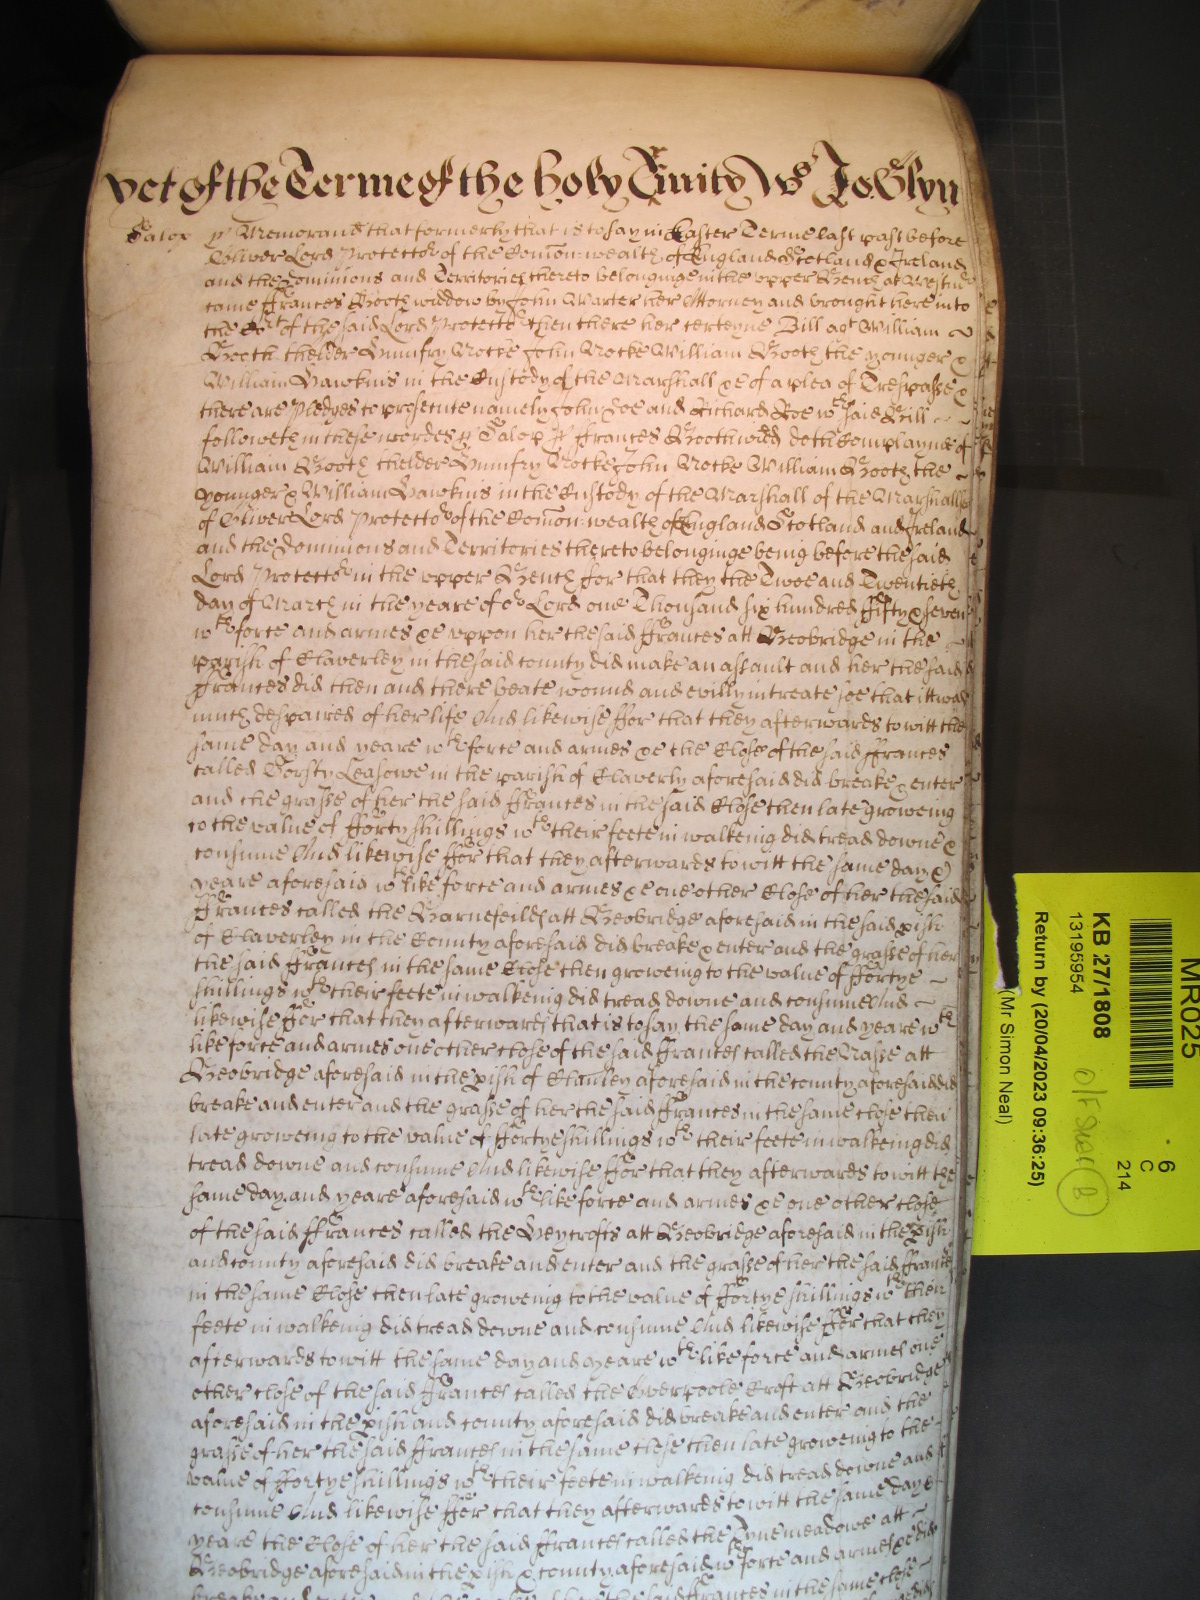 yet of the Terme of the holy Trinity Ws Jo: Glyn
Salop ss Memorand that formerly that is to say in Easter Terme last past before
Oliver Lord Protector of the Comon:wealth of England Scotland & Ireland
and the Dominions and Territories thereto belonginge in the upper Bench at Westmr
came Frances Booth widdow by John Warter her Attorney and brought here into
the Cort of the said Lord Protector then there her certeyne Bill agt William
Booth thelder Humfry Rocke John Rocke William Booth the younger &
William Hawkins in the Custody of the Marshall &c of a plea of Trespasse &
there are Pledges to prosecute namely John Doe and Richard Roe wch said Bill
followeth in these wordes ss Salop ss Frances Booth widd doth Complayne of
William Booth thelder Humfry Rocke John Rocke William Booth the
younger & William Hawkins in the Custody of the Marshall of the Marshallsey
of Oliver Lord Protector of the Comon:wealth of England Scotland and Ireland
and the Dominions and Territories thereto belonginge being before the said
Lord Protector in the upper Bench for that they the Twoe and Twentieth
day of March in the yeare of or Lord one Thousand six hundred fifty & seven
wth force and armes &c uppon her the said ffrances att Beobridge in the
parish of Claverley in the said county did make an assault and her the said
ffrances did then and there beate wound and evilly intreate soe that itt was
much despaired of her life And likewise ffor that they afterwards to witt the
same day and yeare wth force and armes &c the Close of the said ffrances
called Gorsty Leasowe in the parish of Claverly aforesaid did breake & enter
and the grasse of her the said ffrances in the said Close then late groweing
to the value of fforty shillings wth their feete in walkeing did tread downe &
consume And likewise ffor that they afterwards to witt the same day &
yeare aforesaid wth like force and armes &c one other Close of her the said
ffrances called the Barnefeild att Beobridge aforesaid in the said pish
of Claverley in the County aforesaid did breake & enter and the grasse of her
the said ffrances in the same Close then groweing to the value of ffortye
shillings wth their feete in walkeing did tread downe and consume And
likewise ffor that they afterwards that is to say the same day and yeare wth
like force and armes one other close of the said ffrances called the Rasse att
Beobridge aforesaid in the pish of Claverley aforesaid in the county aforesaid did
breake and enter and the grasse of her the said ffrances in the same close then
late groweing to the value of ffortye shillings wth their feete in walkeing did
tread downe and consume And likewise ffor that they afterwards to witt the
same day and yeare aforesaid wth like force and armes &c one other close
of the said ffrances called the Heycrofts att Beobridge aforesaid in the pish
and county aforesaid did breake and enter and the grasse of her the said ffrances
in the same Close then late groweing to the value of ffortye shillings wth their
feete in walkeing did tread downe and consume And likewise ffor that they
afterwards to witt the same day and yeare wth like force and armes one
other close of the said ffrances called the Overpoole Croft att Beobridge
aforesaid in the pish and county aforesaid did breake and enter and the
grasse of her the said ffrances in the same close then late groweing to the
value of ffortye shillings wth their feete in walkeing did tread downe and
consume And likewise ffor that they afterwards to witt the same day &
yeare the Close of her the said ffrances called the meadowe att
Beobridge aforesaid in the pish & county aforesaid wth force and armes &c did
ffrances in the same close
MR025
6
C
214
KB 27/1808
13195954
Return by (20/04/2023 09:36:25)
(Mr Simon Neal)